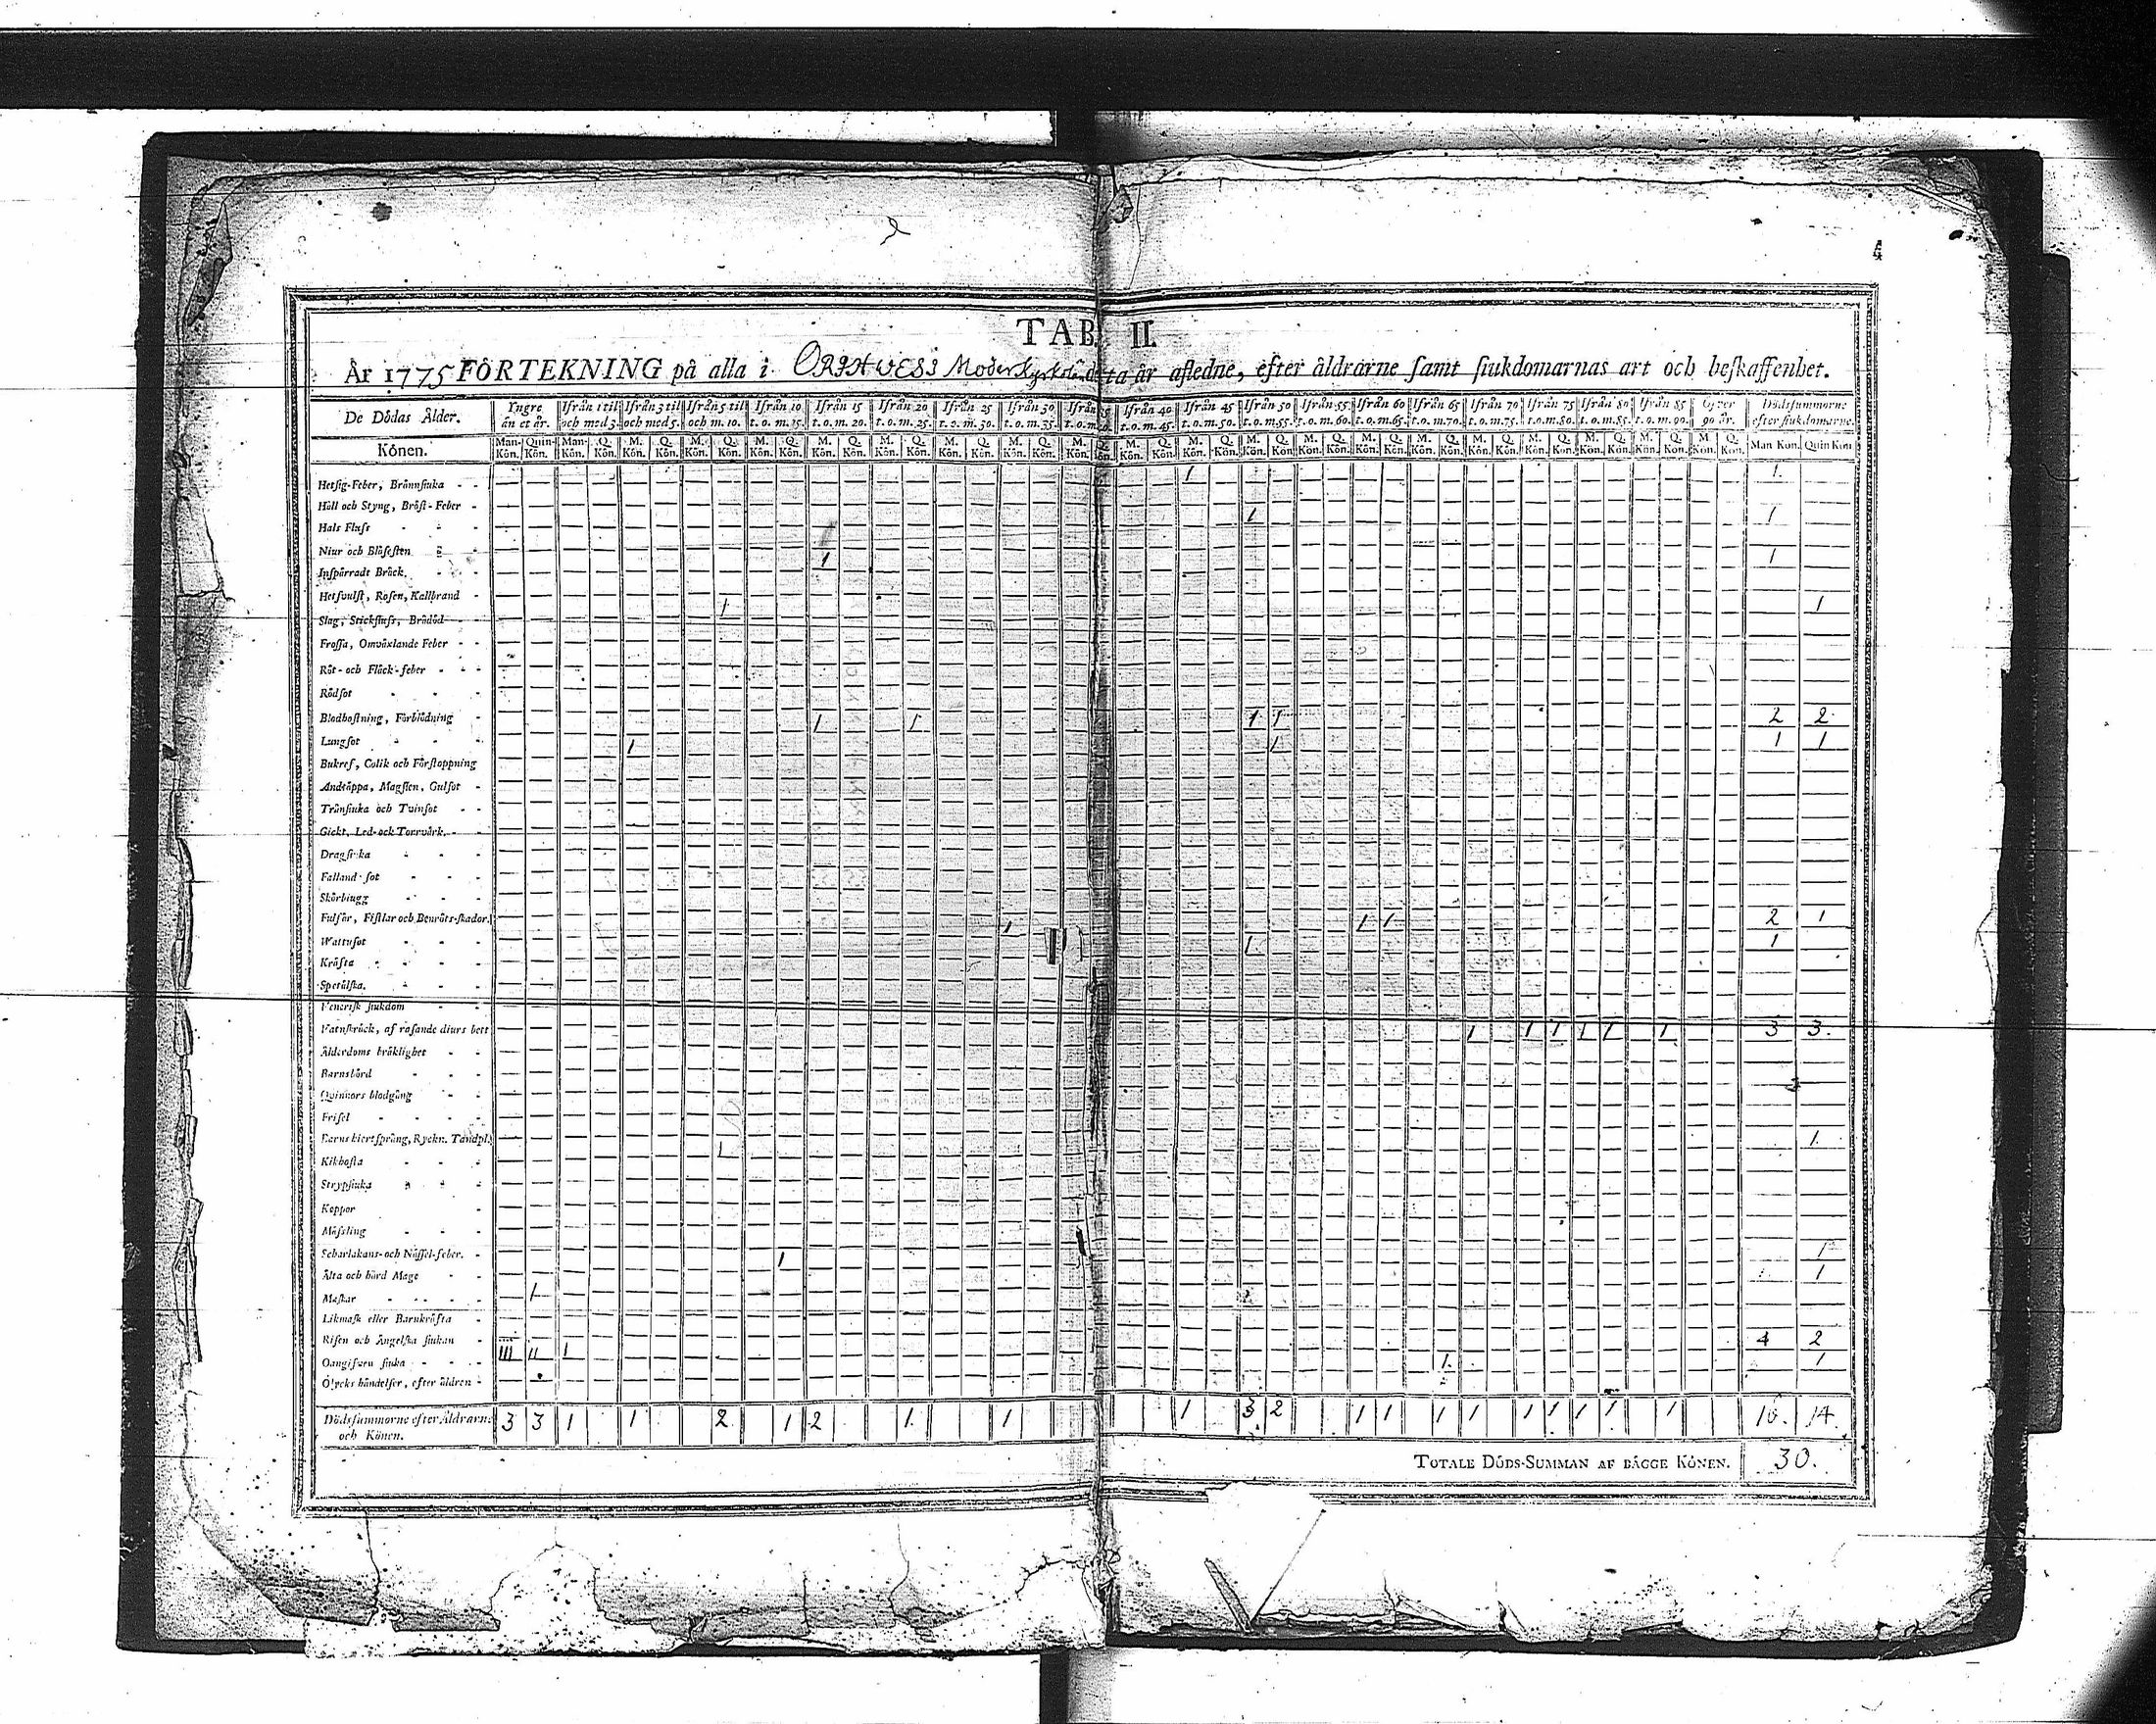 4
TAB. II.
År 1775 FÖRTEKNING på alla i Moderkyrko detta år aflledne, efter åldrarne samt siukdomarnas art och beskaffenhet.
De Dödas Ålder. Yngre än et år. Ifrån 1 til och med 3. Ifrån 3 til och med 5. Ifrån 5 til och m. 10. Ifrån 10 t. o. m. 15. Ifrån 15 t. o. m. 20. Ifrån 20 t. o. m. 25. Ifrån 25 t. o. m. 30. Ifrån 30 t. o. m. 35. Ifrån t. o. m. Ifrån 40 t. o. m. 45. Ifrån 45 t. o. m. 50. Ifrån 50 t. o. m. 55. Ifrån 55 t. o. m. 60. Ifrån 60 t. o. m. 65. Ifrån 65 t. o. m. 70. Ifrån 70 t. o. m. 75. Ifrån 75 t. o. m. 80. Ifrån 80 t. o. m. 85. Ifrån 85 t. o. m. 90. Öfver 90 år. Dödssummorne efter siukdomarne.
Könen. Man-Kön. Quin-Kön. Man-Kön. Q. Kön. M. Kön. Q. Kön. M. Kön. Q. Kön. M. Kön. Q. Kön. M. Kön. Q. Kön. M. Kön. Q. Kön. M. Kön. Q. Kön. M. Kön. Q. Kön. M. Kön. Q. Kön. M. Kön. Q. Kön. M. Kön. Q. Kön. M. Kön. Q. Kön. M. Kön. Q. Kön. M. Kön. Q. Kön. M. Kön. Q. Kön. M. Kön. Q. Kön. M. Kön. Q. Kön. M. Kön. Q. Kön. M. Kön. Q. Kön. M. Kön. Q. Kön. Man Kön. Quin Kön
Hetsig-Feber, Brännsiuka 1 1.
Håll och Styng, Bröst-Feber
Hals Fluss 1 1
Niur och Blåsesten
Inspärradt Bråck. 1 1
Hetsvulst, Rosen, Kallbrand
Slag, Stickfluss, Brådöd 1 1
Frossa, Omväxlande Feber
Röt- och Fläck-feber
Rödsot
Blodhostning, Förblödning 1 1 1 1 2 2
Lungsot 1 1 1 1
Bukref, Colik och Förstoppning
Andtäppa, Magsten, Gulsot
Trånsiuka och Tvinsot
Gickt, Led- ock Torrvärk.
Dragsiuka
Falland-sot
Skörbiugg
Fulsår, Fistlar och Benröts-skador. 1 1 1 2 1
Wattusot 1 1
Kräfta
Spetälska.
Venerisk siukdom
Vatnskräck, af rasande diurs bett 1 1 1 1 1 1 3 3.
Ålderdoms bräklighet
Barnsbörd
Quinnors blodgång
Frisel
Barns hiertsprång, Ryckn. Tandpl. 1.
Kikhosta 1
Strypsiuka
Koppor
Mässling
Scharlakans- och Nässel-feber. 1 1
Älta och hård Mage 1
Maskar 1
Likmask eller Barnkräfta
Risen och Ängelska siukan 4 2
Oangifven siuka III II 1 1. 1
Olycks händelser, efter åldren
Dödssummorne efter Åldrarn: och Könen. 3 3 1 1 2 1 2 1 1 1 3 2 1 1 1 1 1 1 1 1 1 16. 14.
TOTALE DÖDS-SUMMAN AF BÄGGE KÖNEN. 30.